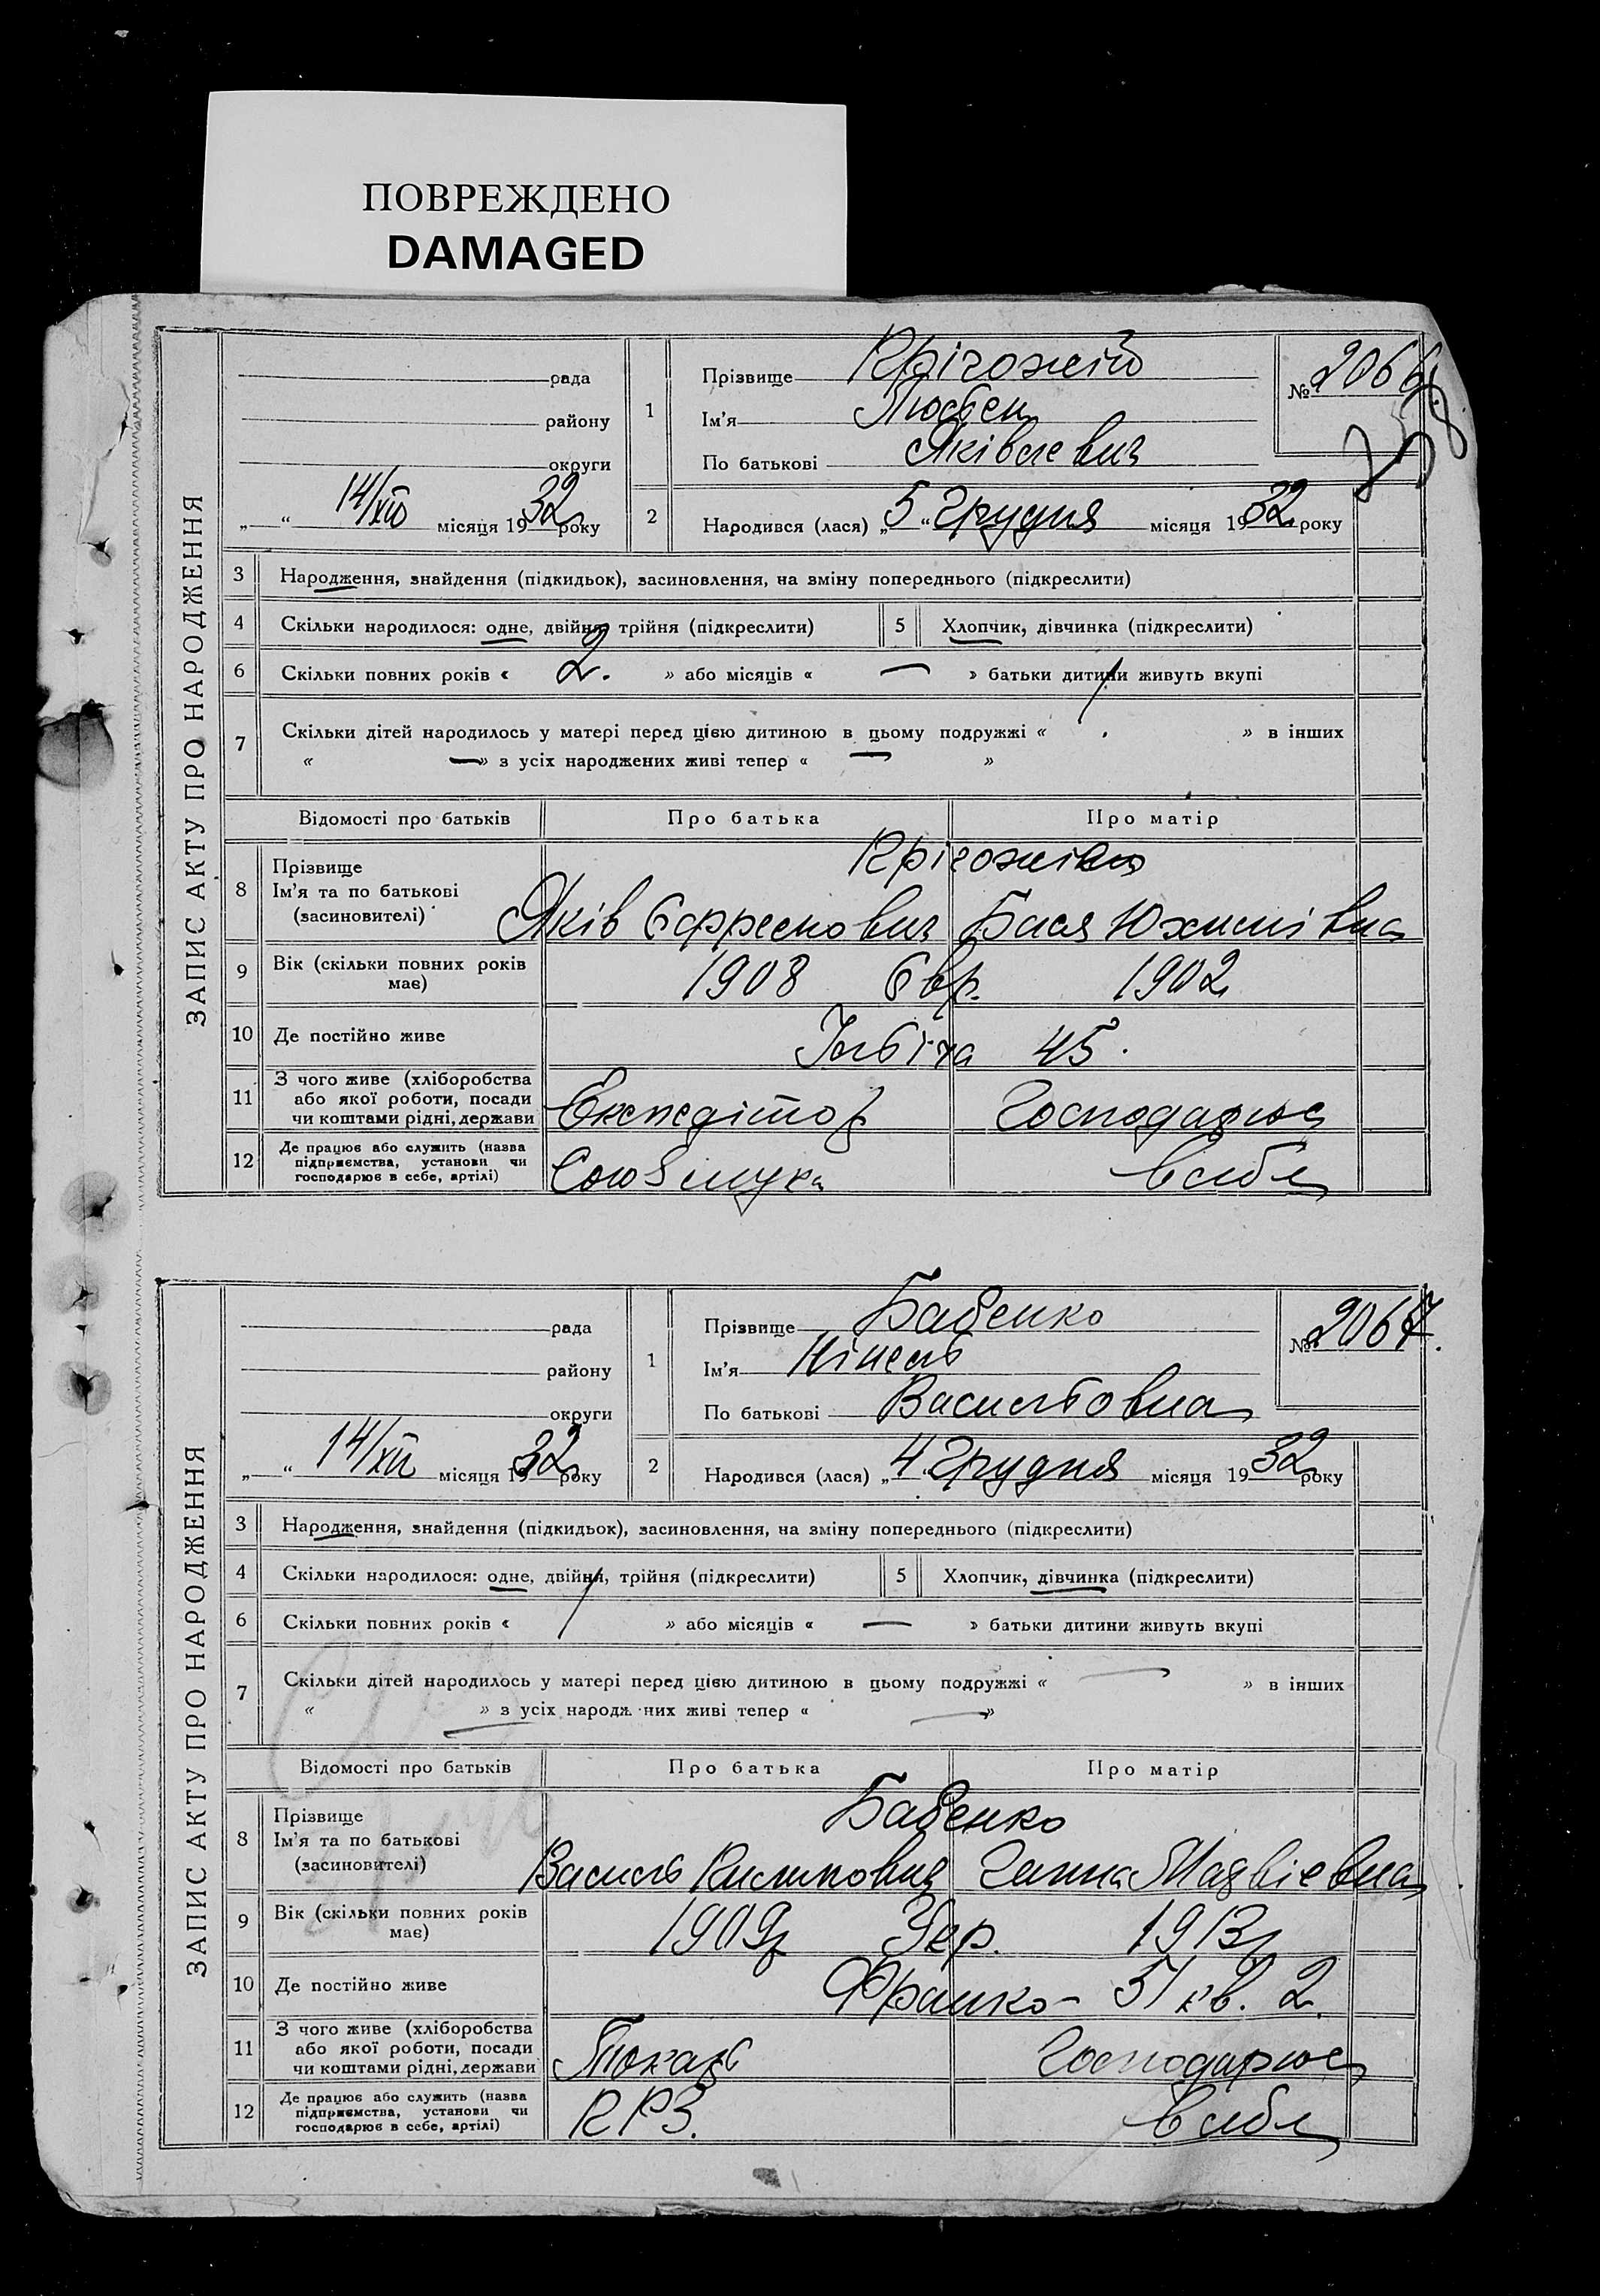 ПОВРЕЖДЕНО
DAMAGED
ЗАПИС АКТУ ПРО НАРОДЖЕННЯ
рада
району
округи
„ “ 14/XII місяця 1932 року
1
Прізвище
Ім'я
По батькові Яківлевич
№ 2066
238
2
Народився (лася) „5“ Грудня місяця 1932 року
3 Народження, знайдення (підкидьок), засиновлення, на зміну попереднього (підкреслити)
4 Скільки народилося: одне, двійня, трійня (підкреслити) 5 Хлопчик, дівчинка (підкреслити)
6 Скільки повних років « 2. » або місяців « — » батьки дитини живуть вкупі
7 Скільки дітей народилось у матері перед цією дитиною в цьому подружжі « » в інших
« —» з усіх народжених живі тепер « — »
Відомості про батьків Про батька Про матір
8 Прізвище
Ім'я та по батькові
(засиновителі)
Яків Єфремович Бася Юхимівна
9 Вік (скільки повних років має) 1908 Євр. 1902
10 Де постійно живе 45.
11 З чого живе (хліборобства або якої роботи, посади чи коштами рідні, держави Експедітор Господарює
12 Де працює або служить (назва підприємства, установи чи господарює в себе, артілі) Союзмука в себе
ЗАПИС АКТУ ПРО НАРОДЖЕННЯ
рада
району
округи
„ “ 14/XII місяця 1932 року
1
Прізвище Бабенко
Ім'я Нінель
По батькові Васильовна
№ 2067.
2
Народився (лася) „4 Грудня місяця 1932 року
3 Народження, знайдення (підкидьок), засиновлення, на зміну попереднього (підкреслити)
4 Скільки народилося: одне, двійня, трійня (підкреслити) 5 Хлопчик, дівчинка (підкреслити)
6 Скільки повних років « 1 » або місяців « — » батьки дитини живуть вкупі
7 Скільки дітей народилось у матері перед цією дитиною в цьому подружжі « — » в інших
« » з усіх народж них живі тепер « —»
Відомості про батьків Про батька Про матір
8 Прізвище Бабенко
Ім'я та по батькові
(засиновителі)
Василь Филипович Ганна Мадвієвна
9 Вік (скільки повних років має) 1909р Укр. 1913р
10 Де постійно живе Франко - 51 кв. 2.
11 З чого живе (хліборобства або якої роботи, посади чи коштами рідні, держави Токарь Господарює
12 Де працює або служить (назва підприємства, установи чи господарює в себе, артілі) КРЗ. в себе